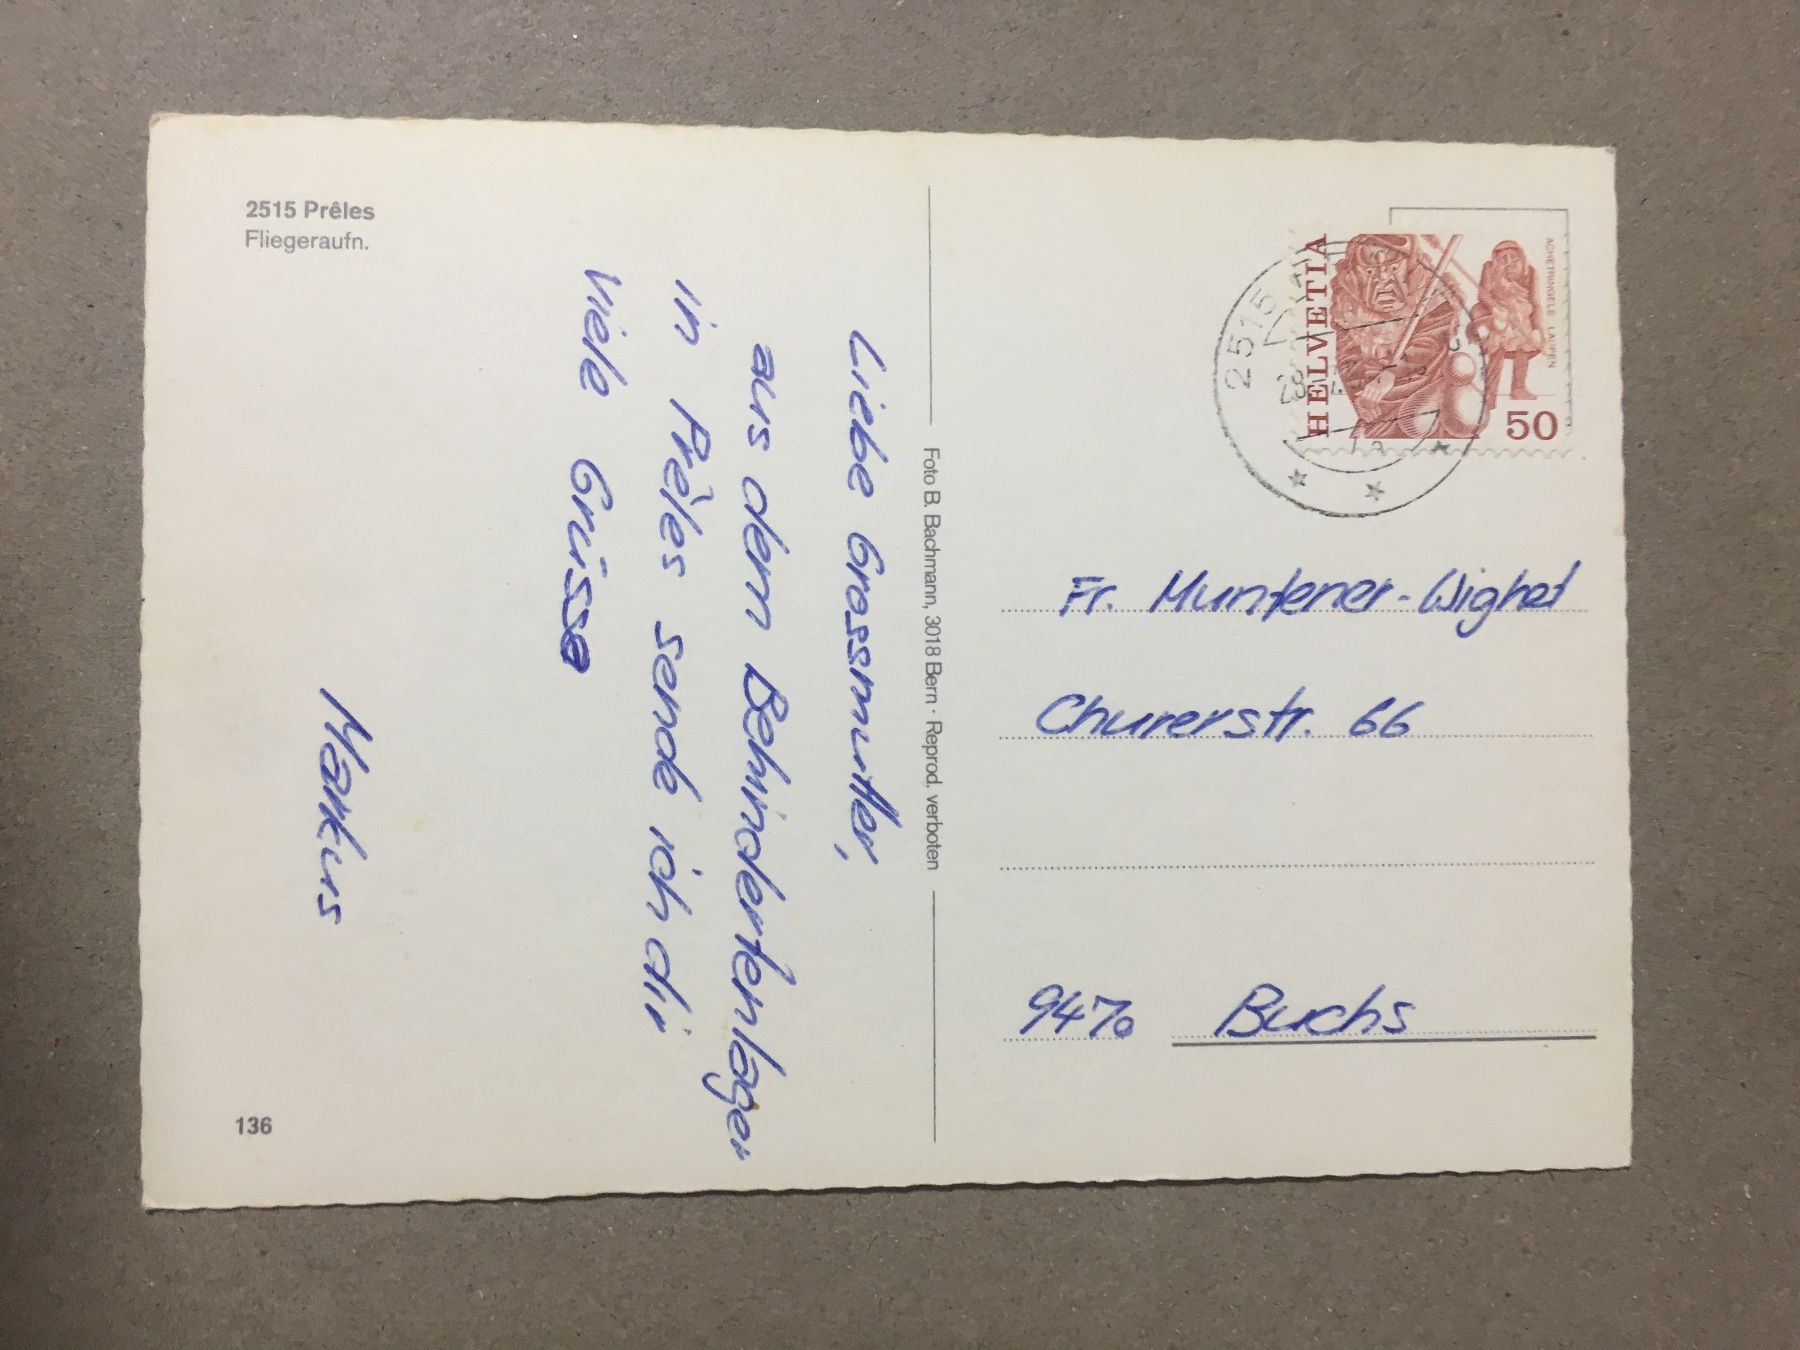 2515 Prêles
Fliegeraufn.
Liebe Grossmutter,
aus dem Behindertenlager
in Prêles sende ich dir
viele Grüsse
Markus
136
Foto B. Bachmann, 3018 Bern · Reprod. verboten
HELVETIA
ACHETRINGELE LAUPEN
50
2515
Fr. Muntener-Wighet
Churerstr. 66
9470 Buchs